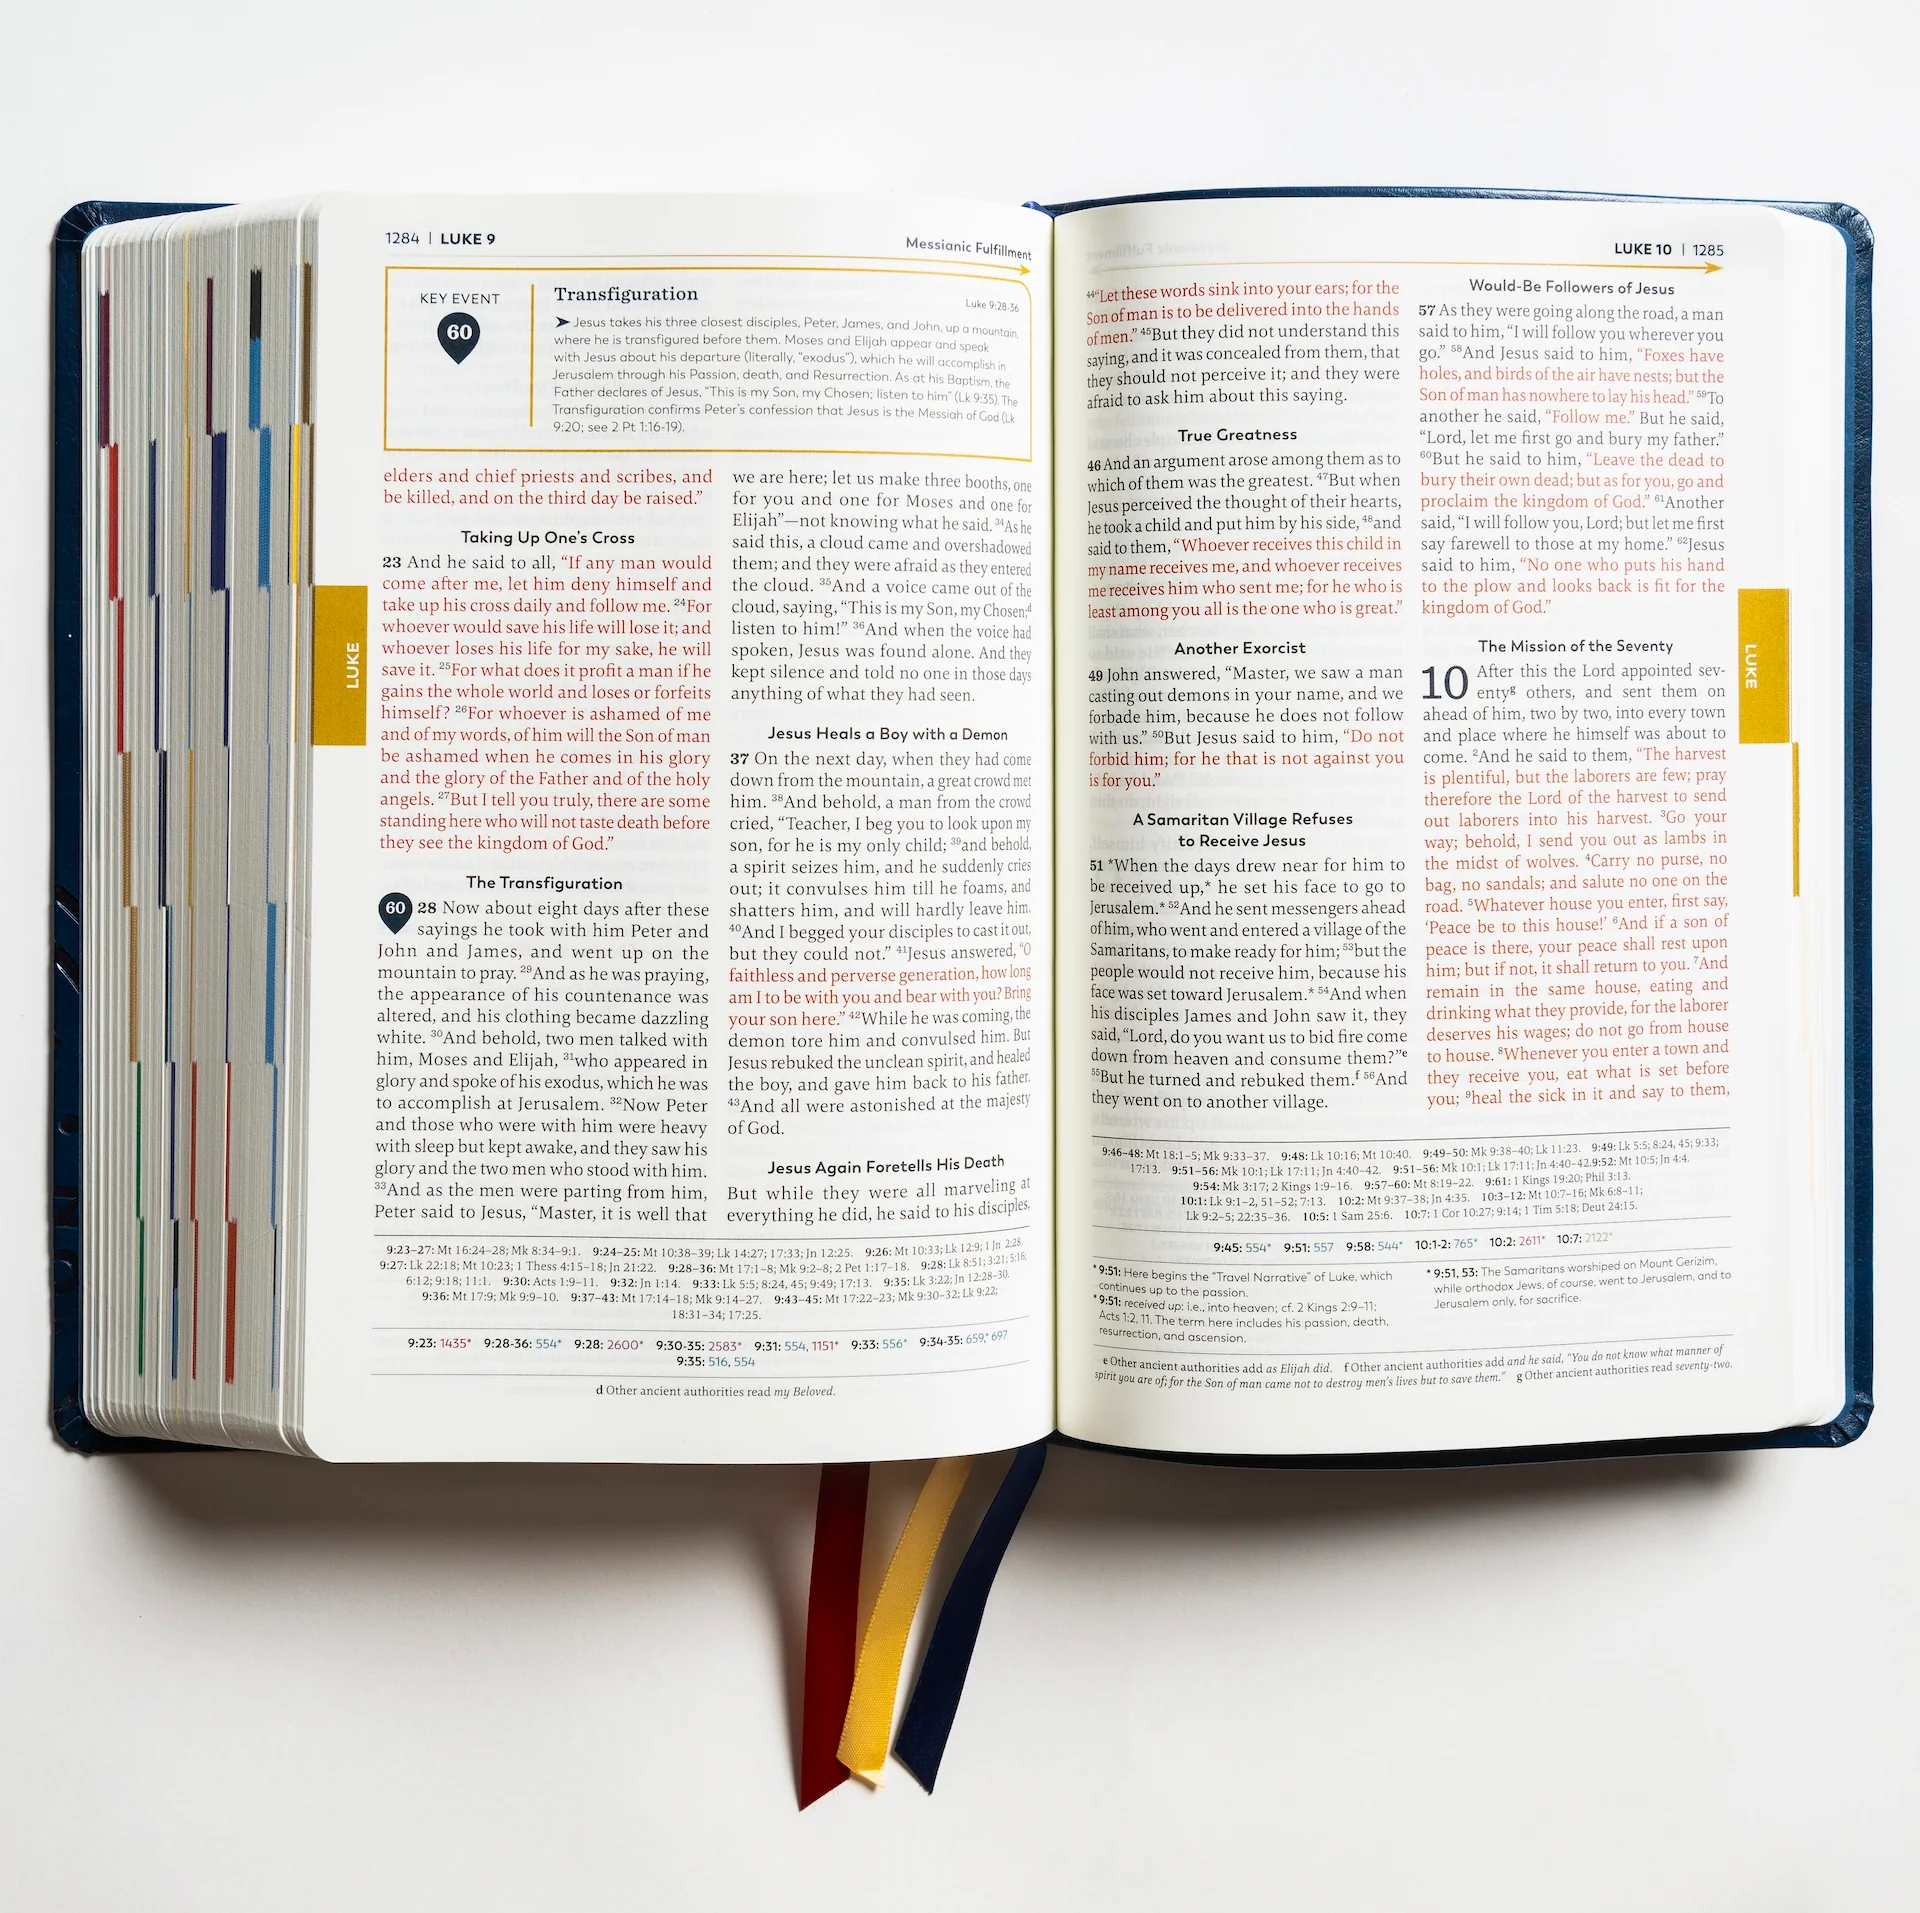 1284 | LUKE 9
Messianic Fulfillment
KEY EVENT
60
Transfiguration
Luke 9:28-36
➤ Jesus takes his three closest disciples, Peter, James, and John, up a mountain,
where he is transfigured before them. Moses and Elijah appear and speak
with Jesus about his departure (literally, “exodus”), which he will accomplish in
Jerusalem through his Passion, death, and Resurrection. As at his Baptism, the
Father declares of Jesus, “This is my Son, my Chosen; listen to him” (Lk 9:35). The
Transfiguration confirms Peter’s confession that Jesus is the Messiah of God (Lk
9:20; see 2 Pt 1:16-19).
elders and chief priests and scribes, and
be killed, and on the third day be raised.”
Taking Up One’s Cross
23 And he said to all, “If any man would
come after me, let him deny himself and
take up his cross daily and follow me. 24For
whoever would save his life will lose it; and
whoever loses his life for my sake, he will
save it. 25For what does it profit a man if he
gains the whole world and loses or forfeits
himself? 26For whoever is ashamed of me
and of my words, of him will the Son of man
be ashamed when he comes in his glory
and the glory of the Father and of the holy
angels. 27But I tell you truly, there are some
standing here who will not taste death before
they see the kingdom of God.”
The Transfiguration
60 28 Now about eight days after these
sayings he took with him Peter and
John and James, and went up on the
mountain to pray. 29And as he was praying,
the appearance of his countenance was
altered, and his clothing became dazzling
white. 30And behold, two men talked with
him, Moses and Elijah, 31who appeared in
glory and spoke of his exodus, which he was
to accomplish at Jerusalem. 32Now Peter
and those who were with him were heavy
with sleep but kept awake, and they saw his
glory and the two men who stood with him.
33And as the men were parting from him,
Peter said to Jesus, “Master, it is well that
we are here; let us make three booths, one
for you and one for Moses and one for
Elijah”—not knowing what he said. 34As he
said this, a cloud came and overshadowed
them; and they were afraid as they entered
the cloud. 35And a voice came out of the
cloud, saying, “This is my Son, my Chosen;d
listen to him!” 36And when the voice had
spoken, Jesus was found alone. And they
kept silence and told no one in those days
anything of what they had seen.
Jesus Heals a Boy with a Demon
37 On the next day, when they had come
down from the mountain, a great crowd met
him. 38And behold, a man from the crowd
cried, “Teacher, I beg you to look upon my
son, for he is my only child; 39and behold,
a spirit seizes him, and he suddenly cries
out; it convulses him till he foams, and
shatters him, and will hardly leave him.
40And I begged your disciples to cast it out,
but they could not.” 41Jesus answered, “O
faithless and perverse generation, how long
am I to be with you and bear with you? Bring
your son here.” 42While he was coming, the
demon tore him and convulsed him. But
Jesus rebuked the unclean spirit, and healed
the boy, and gave him back to his father.
43And all were astonished at the majesty
of God.
Jesus Again Foretells His Death
But while they were all marveling at
everything he did, he said to his disciples,
9:23–27: Mt 16:24–28; Mk 8:34–9:1. 9:24–25: Mt 10:38–39; Lk 14:27; 17:33; Jn 12:25. 9:26: Mt 10:33; Lk 12:9; 1 Jn 2:28.
9:27: Lk 22:18; Mt 10:23; 1 Thess 4:15–18; Jn 21:22. 9:28–36: Mt 17:1–8; Mk 9:2–8; 2 Pet 1:17–18. 9:28: Lk 8:51; 3:21; 5:16;
6:12; 9:18; 11:1. 9:30: Acts 1:9–11. 9:32: Jn 1:14. 9:33: Lk 5:5; 8:24, 45; 9:49; 17:13. 9:35: Lk 3:22; Jn 12:28–30.
9:36: Mt 17:9; Mk 9:9–10. 9:37–43: Mt 17:14–18; Mk 9:14–27. 9:43–45: Mt 17:22–23; Mk 9:30–32; Lk 9:22;
18:31–34; 17:25.
9:23: 1435* 9:28-36: 554* 9:28: 2600* 9:30-35: 2583* 9:31: 554, 1151* 9:33: 556* 9:34-35: 659,* 697
9:35: 516, 554
d Other ancient authorities read my Beloved.
LUKE
LUKE 10 | 1285
44“Let these words sink into your ears; for the
Son of man is to be delivered into the hands
of men.” 45But they did not understand this
saying, and it was concealed from them, that
they should not perceive it; and they were
afraid to ask him about this saying.
True Greatness
46 And an argument arose among them as to
which of them was the greatest. 47But when
Jesus perceived the thought of their hearts,
he took a child and put him by his side, 48and
said to them, “Whoever receives this child in
my name receives me, and whoever receives
me receives him who sent me; for he who is
least among you all is the one who is great.”
Another Exorcist
49 John answered, “Master, we saw a man
casting out demons in your name, and we
forbade him, because he does not follow
with us.” 50But Jesus said to him, “Do not
forbid him; for he that is not against you
is for you.”
A Samaritan Village Refuses
to Receive Jesus
51 *When the days drew near for him to
be received up,* he set his face to go to
Jerusalem.* 52And he sent messengers ahead
of him, who went and entered a village of the
Samaritans, to make ready for him; 53but the
people would not receive him, because his
face was set toward Jerusalem.* 54And when
his disciples James and John saw it, they
said, “Lord, do you want us to bid fire come
down from heaven and consume them?”e
55But he turned and rebuked them.f 56And
they went on to another village.
Would-Be Followers of Jesus
57 As they were going along the road, a man
said to him, “I will follow you wherever you
go.” 58And Jesus said to him, “Foxes have
holes, and birds of the air have nests; but the
Son of man has nowhere to lay his head.” 59To
another he said, “Follow me.” But he said,
“Lord, let me first go and bury my father.”
60But he said to him, “Leave the dead to
bury their own dead; but as for you, go and
proclaim the kingdom of God.” 61Another
said, “I will follow you, Lord; but let me first
say farewell to those at my home.” 62Jesus
said to him, “No one who puts his hand
to the plow and looks back is fit for the
kingdom of God.”
The Mission of the Seventy
10 After this the Lord appointed sev-
entyg others, and sent them on
ahead of him, two by two, into every town
and place where he himself was about to
come. 2And he said to them, “The harvest
is plentiful, but the laborers are few; pray
therefore the Lord of the harvest to send
out laborers into his harvest. 3Go your
way; behold, I send you out as lambs in
the midst of wolves. 4Carry no purse, no
bag, no sandals; and salute no one on the
road. 5Whatever house you enter, first say,
‘Peace be to this house!’ 6And if a son of
peace is there, your peace shall rest upon
him; but if not, it shall return to you. 7And
remain in the same house, eating and
drinking what they provide, for the laborer
deserves his wages; do not go from house
to house. 8Whenever you enter a town and
they receive you, eat what is set before
you; 9heal the sick in it and say to them,
9:46–48: Mt 18:1–5; Mk 9:33–37. 9:48: Lk 10:16; Mt 10:40. 9:49–50: Mk 9:38–40; Lk 11:23. 9:49: Lk 5:5; 8:24, 45; 9:33;
17:13. 9:51–56: Mk 10:1; Lk 17:11; Jn 4:40–42. 9:51–56: Mk 10:1; Lk 17:11; Jn 4:40–42.9:52: Mt 10:5; Jn 4:4.
9:54: Mk 3:17; 2 Kings 1:9–16. 9:57–60: Mt 8:19–22. 9:61: 1 Kings 19:20; Phil 3:13.
10:1: Lk 9:1–2, 51–52; 7:13. 10:2: Mt 9:37–38; Jn 4:35. 10:3–12: Mt 10:7–16; Mk 6:8–11;
Lk 9:2–5; 22:35–36. 10:5: 1 Sam 25:6. 10:7: 1 Cor 10:27; 9:14; 1 Tim 5:18; Deut 24:15.
9:45: 554* 9:51: 557 9:58: 544* 10:1-2: 765* 10:2: 2611* 10:7: 2122*
* 9:51: Here begins the “Travel Narrative” of Luke, which
continues up to the passion.
* 9:51: received up: i.e., into heaven; cf. 2 Kings 2:9–11;
Acts 1:2, 11. The term here includes his passion, death,
resurrection, and ascension.
* 9:51, 53: The Samaritans worshiped on Mount Gerizim,
while orthodox Jews, of course, went to Jerusalem, and to
Jerusalem only, for sacrifice.
e Other ancient authorities add as Elijah did. f Other ancient authorities add and he said, “You do not know what manner of
spirit you are of; for the Son of man came not to destroy men’s lives but to save them.” g Other ancient authorities read seventy-two.
LUKE